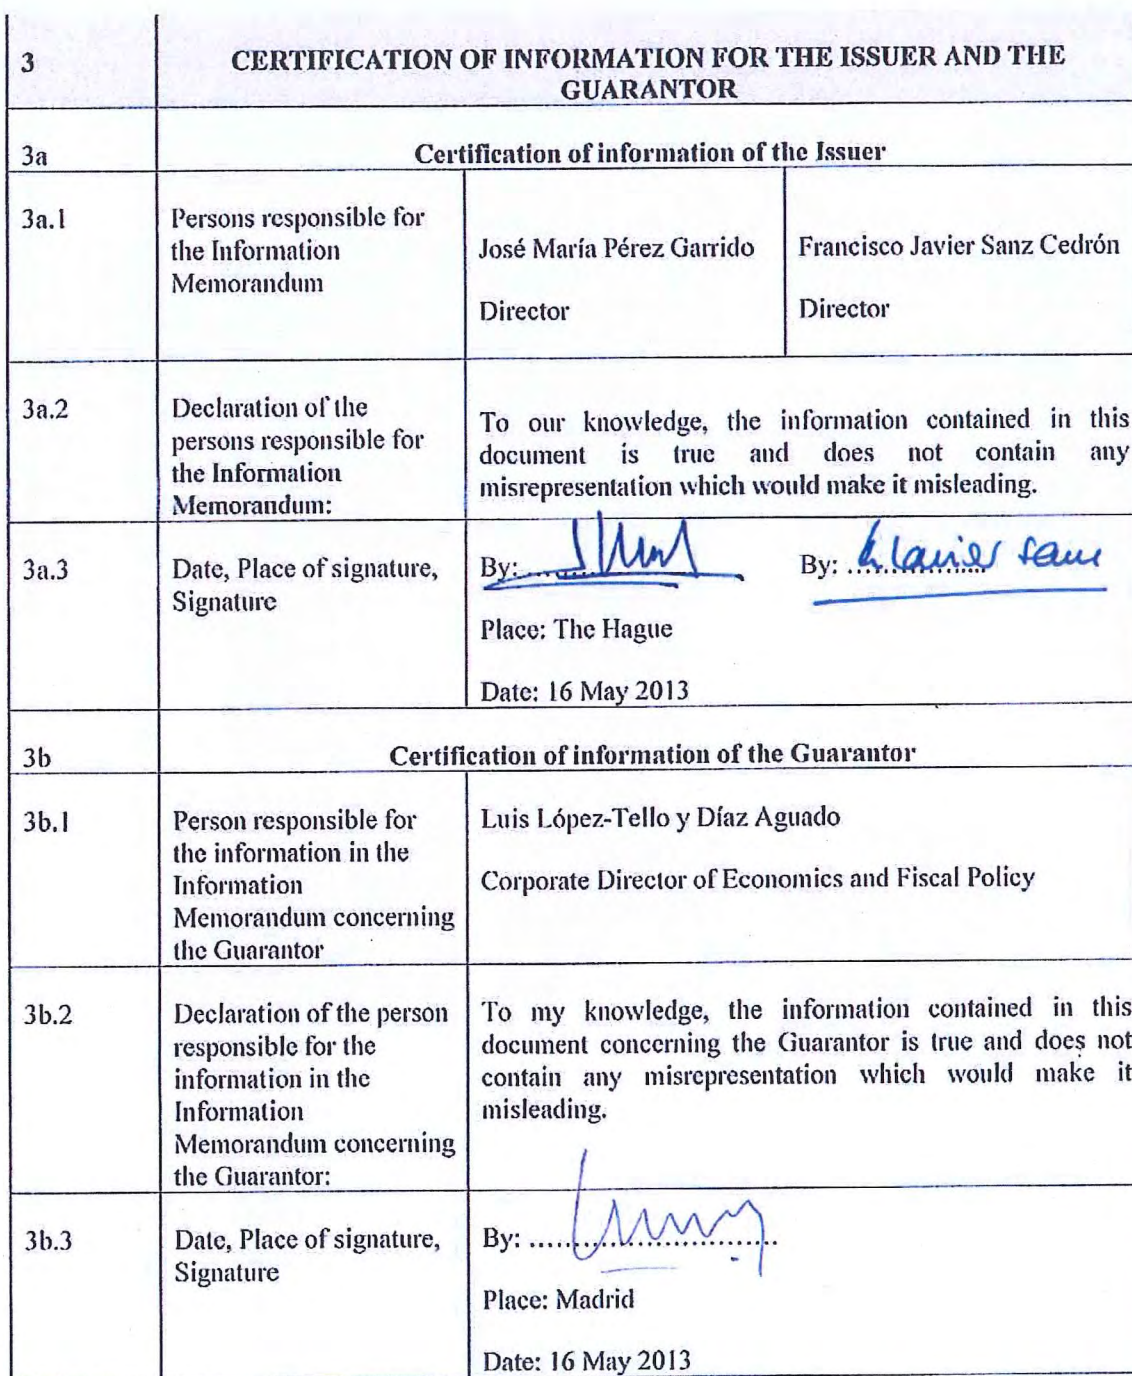 3
CERTIFICATION OF INFORMATION FOR THE ISSUER AND THE
GUARANTOR
3a
Certification of information of the Issuer
3a.1
Persons responsible for
the Information
Memorandum
José María Pérez Garrido
Director
Francisco Javier Sanz Cedrón
Director
3a.2
Declaration of the
persons responsible for
the Information
Memorandum:
To our knowledge, the information contained in this
document is true and does not contain any
misrepresentation which would make it misleading.
3a.3
Date, Place of signature,
Signature
By: ............
By: .................
Place: The Hague
Date: 16 May 2013
3b
Certification of information of the Guarantor
3b.1
Person responsible for
the information in the
Information
Memorandum concerning
the Guarantor
Luis López-Tello y Díaz Aguado
Corporate Director of Economics and Fiscal Policy
3b.2
Declaration of the person
responsible for the
information in the
Information
Memorandum concerning
the Guarantor:
To my knowledge, the information contained in this
document concerning the Guarantor is true and does not
contain any misrepresentation which would make it
misleading.
3b.3
Date, Place of signature,
Signature
By: ..............................
Place: Madrid
Date: 16 May 2013